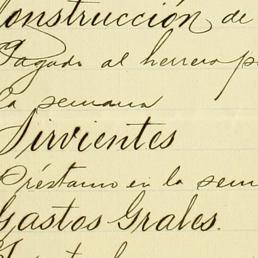 Construcción de
Pagado al herrero p
la semana
Sirvientes
Préstamo en la sem
Gastos Grales.